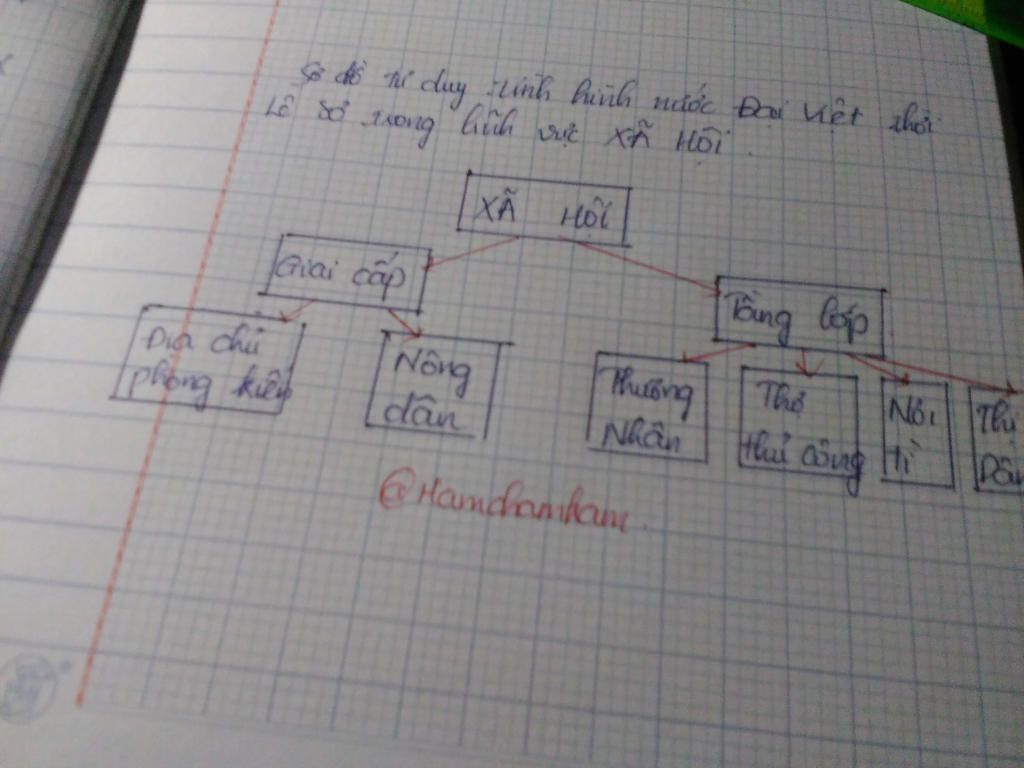 Sơ đồ tư duy tình hình nước Đại Việt thời
Lê Sơ trong lĩnh vực XÃ HỘI.
XÃ HỘI
Giai cấp
Tầng lớp
Địa chủ
phong kiến
Nông
dân
Thương
Nhân
Thợ
thủ công
Nô
tì
Thị
Dân
@Hamchamham.